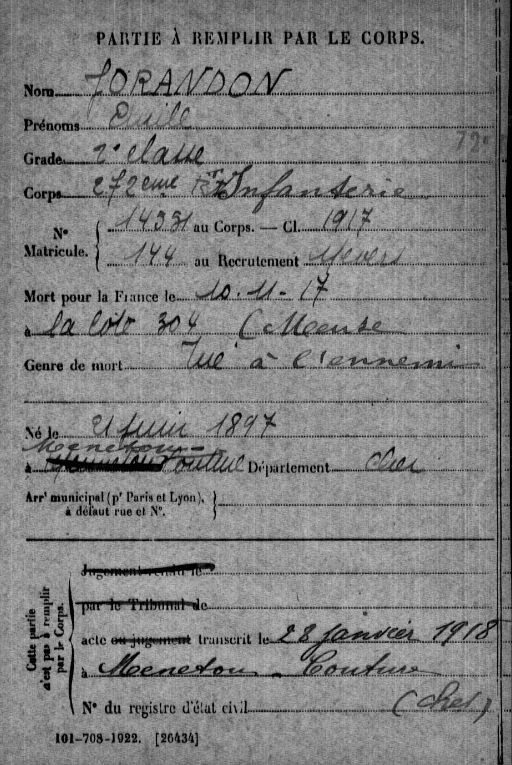 PARTIE À REMPLIR PAR LE CORPS.
Nom JORANDON
Prénoms Emile
Grade 2e classe
Corps 272eme Rt Infanterie
N° Matricule. 14381 au Corps. — Cl. 1917
144 au Recrutement
Mort pour la France le 10-11-17
à la Cote 304 (Meuse
Genre de mort Tué à l'ennemi
Né le 21 Juin 1897
Menetou-
à Couture Département Cher
Arrt municipal (pr Paris et Lyon),
à défaut rue et N°.
Cette partie n'est pas à remplir par le Corps.
Jugement rendu le
par le Tribunal de
acte ou jugement transcrit le 28 Janvier 1918
à Menetou-Couture
N° du registre d'état civil (Cher)
101-708-1922. [26434]